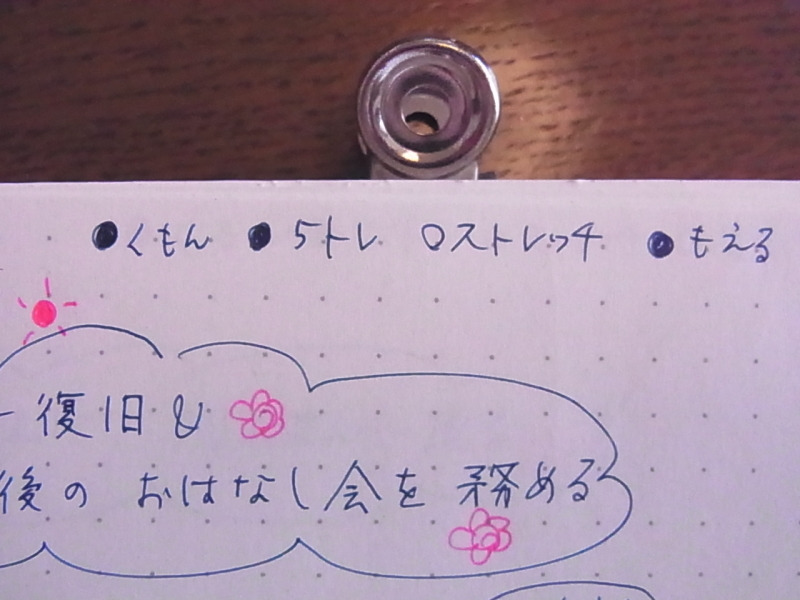 ●くもん ●5トレ ○ストレッチ ●もえる
ー復旧&
後の おはなし会を 務める